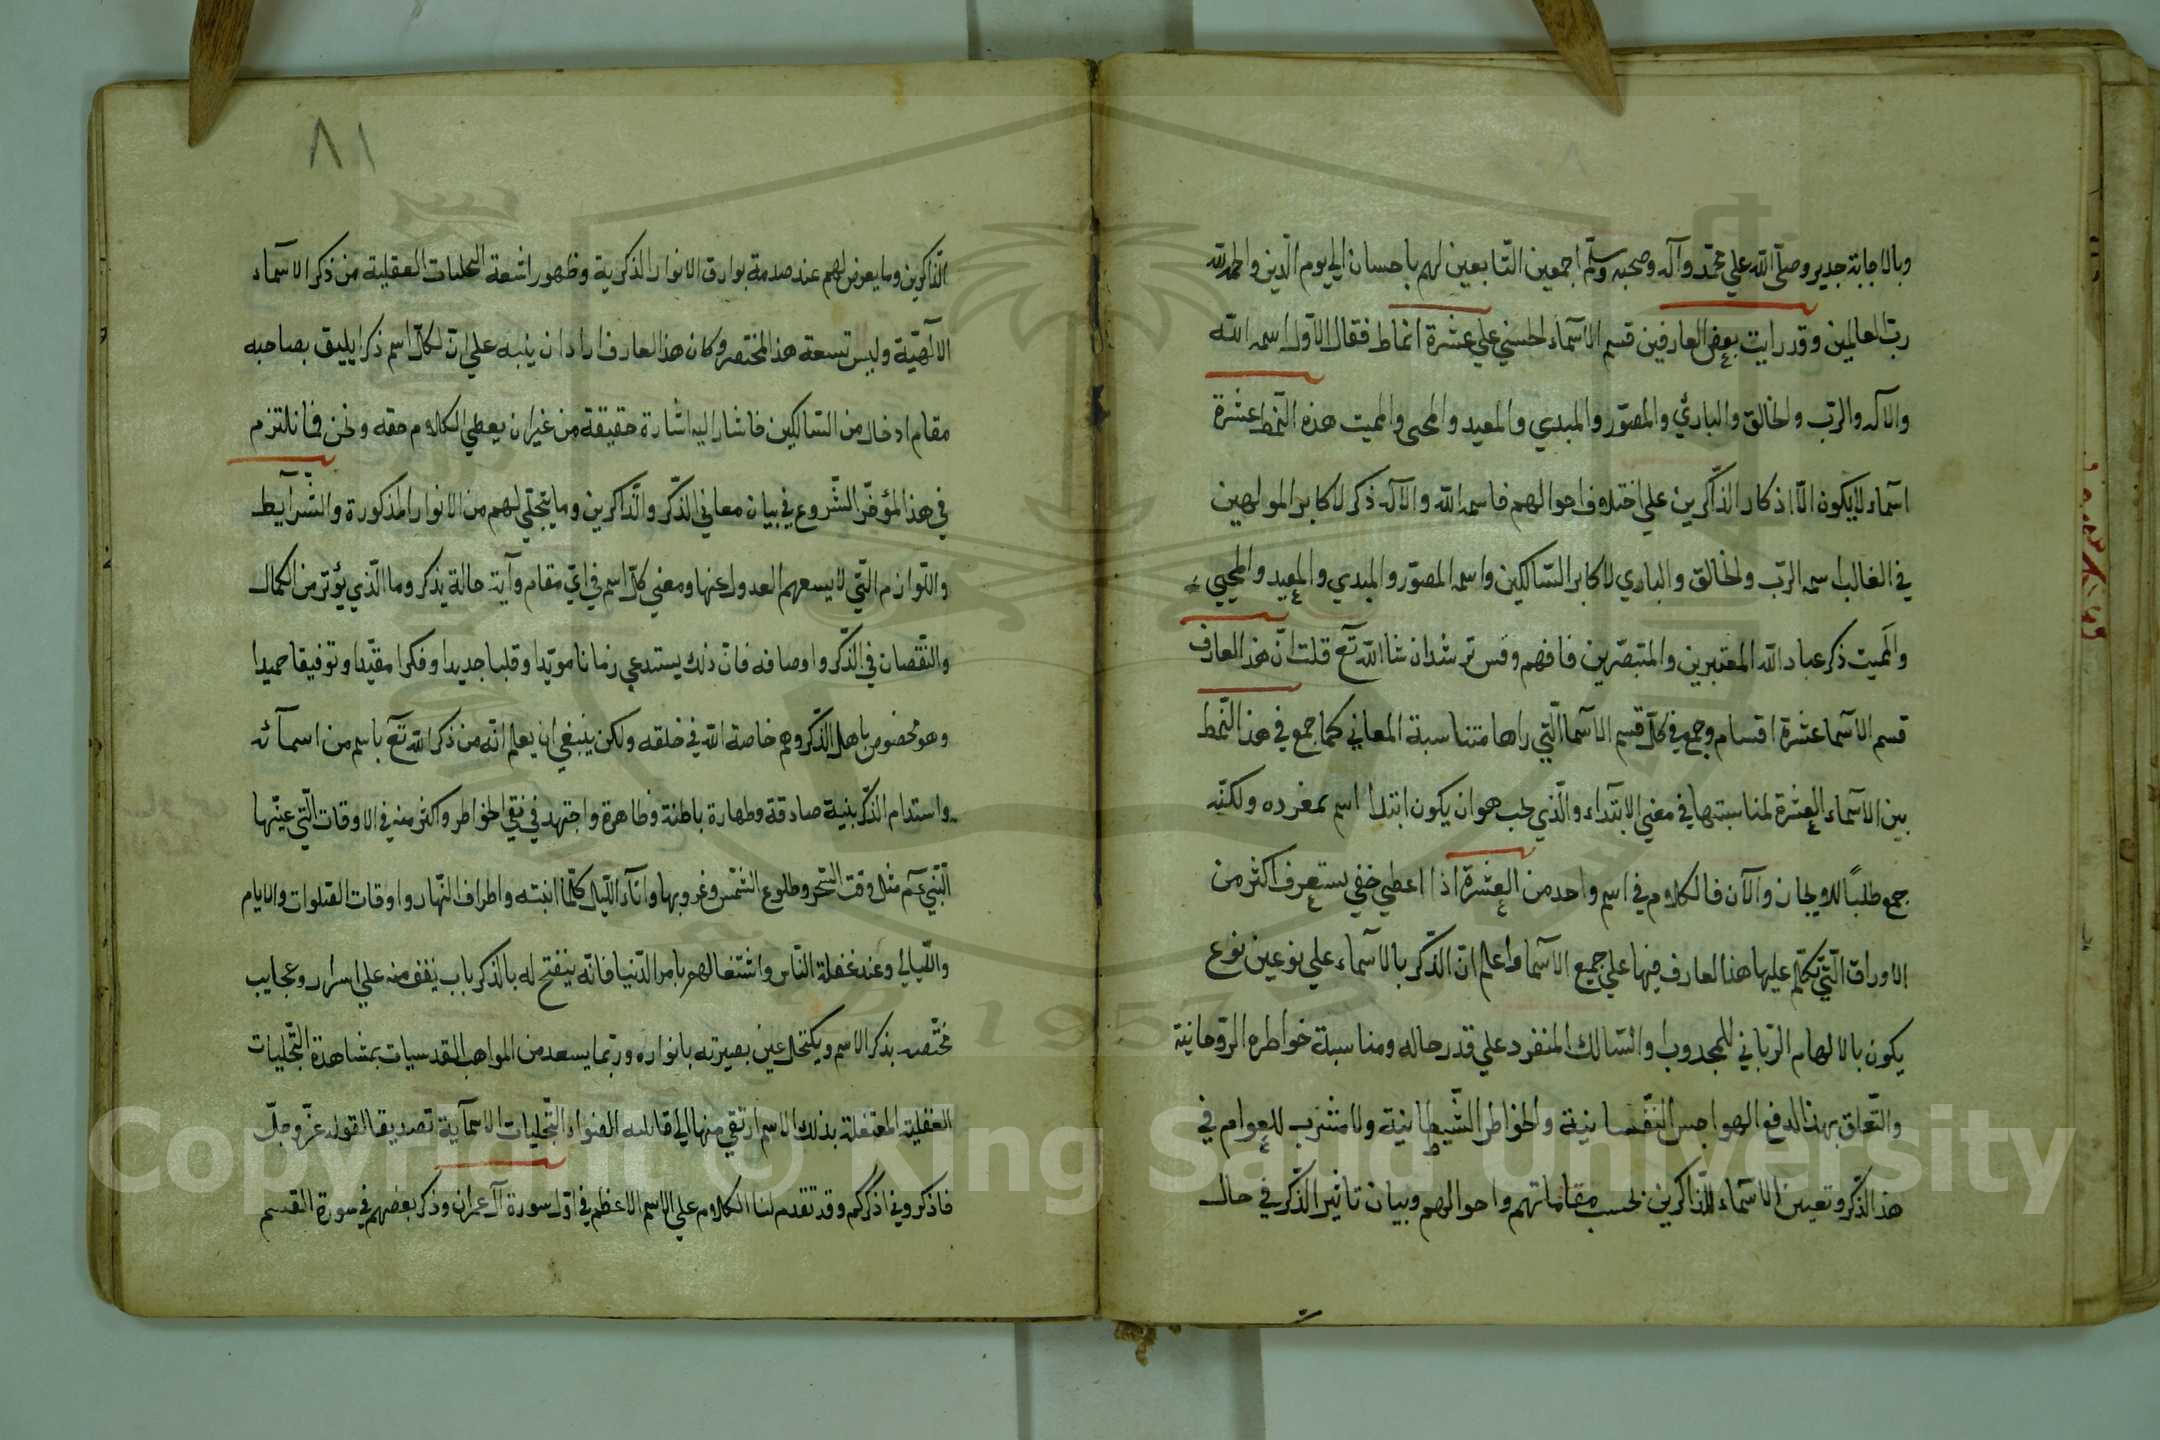 وبالاجابة جدير وصلّى الله علي محمّد وآله وصحبه وسلّم اجمعين التّابعين لهم باحسان الي يوم الدّين والحمد لله
ربّ العالمين وقد رايت بعض العارفين قسم الاسمآء الحسني علي عشرة انماط فقال الاوّل اسمه الله
والاله والربّ والخالق والبارئ والمصوّر والمبدي والمعيد والمحى والمميت هذه النّمط عشرة
اسمآء لا يكون الّا اذكار الذّاكرين علي اختلاف احوالهم فاسمه الله والاله ذكر لاكابر المولهين
في الغالب اسمه الربّ والخالق والباري لاكابر السّالكين واسمه المصوّر والمبدي والمعيد والمحيي
والمميت ذكر عباد الله المعتبرين والمتبصّرين فافهم وقس ترشد ان شا الله تع قلت انّ هذا العارف
قسم الاسمآ عشرة اقسام وجمع في كلّ قسم الاسمآ الّتي راها متناسبة المعاني كما جمع في هذا النّمط
بين الاسمآء العشرة لمناسبتها في معني الابتدآء والّذي يجب هو ان يكون ابتدا اسم بمفرده ولكنّه
جمع طلبًا للايجاز والآن فالكلام في اسم واحد من العشرة اذا اعطي حقّي يستغرف اكثر من
الاوراق الّتي تكلّم عليها هذا العارف فيها علي جميع الاسمآ واعلم انّ الذّكر بالاسمآء علي نوعين نوع
يكون بالالهام الربّاني للمجذوب او السّالك المنفرد علي قدر حاله ومناسبة خواطره الرّوحانية
والتّعلق بهذا لدفع الهواجس النّفسانية والخواطر الشّيطانية ولا مشرب للعوام في
هذا الذّكر وتعيين الاسمآء للذّاكرين بحسب مقاماتهم واحوالهم وبيان تاثير الذّكر في حال
٨١
الذّاكرين وما يعرض لهم عند صدمة بوارق الانوار الذكرية وظهور اشعة التجليات العقلية من ذكر الاسمآء
الالهيّة وليس تسعة هذا المختصر وكان هذا العارف اراد ان ينبه علي انّ لكلّ اسم ذكرا يليق بصاحبه
مقام ادخال من السّالكين فاشار اليه اشارة حقيقة من غير ان يعطي الكلام حقه ونحن فما نلتزم
في هذا المؤخّر الشّروع في بيان معاني الذّكر والذّاكرين وما يتجلّي لهم من الانوار المذكورة والشّرآيط
واللّوازم الّتي لا يسعهم العدول عنها ومعني كلّ اسم في ايّ مقام وآية حالة يذكر وما الّذي يؤثر من الكمال
والنقصان في الذّكر واوصافه فانّ ذلك يستدعي زمانا مويّدا وقلبا جديدا وفكرا مقيّدا وتوفيقا حميدا
وهو مخصوص باهل الذّكر وهم خاصة الله في خلقه ولكن ينبغي ان يعلم انّه من ذكر الله تع باسم من اسمآئه
واستدام الذّكر بنية صادقة وطهارة باطنة وظاهرة واجتهد في نفي الخواطر واكثر منه في الاوقات الّتي عيّنها
النّبي عم مثل وقت السّحر وطلوع الشّمس وغروبها وانآء اللّيل كلّما انتبه واطراف النّهار واوقات الصّلوات والايام
واللّيالي وعند غفلة النّاس واشتغالهم بامر الدّنيا فانّه ينفتح له بالذّكر باب يقف منه علي اسرار وعجايب
مختّصه بذكر الاسم ويكتحل عين بصيرته بانواره وربّما يسعد من المواهب القدسيات بمشاهدة التّجليات
الفعلية المتعلقة بذلك الاسم ارتقي منها الي قابلية التّجليات الاسمآية تصديقا لقوله عزّ وجلّ
فاذكروني اذكركم وقد تقدم لنا الكلام علي الاسم الاعظم في اوّل سورة آل عمران وذكر بعضهم في سورة القسم